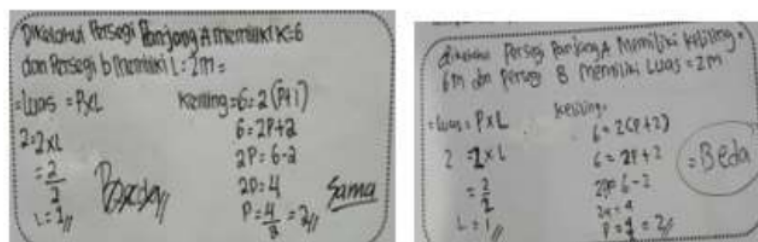 Diketahui Persegi Panjang A memiliki K=6
dan Persegi b memiliki L=2m =
=Luas = PxL
2=2xL
=2/2
L=1//
Keliling=6=2(P+1)
6=2P+2
2P=6-2
2P=4
P=4/2=2//
Sama
diketahui Persegi Panjang A memiliki keliling=
6m dan Persegi B memiliki Luas=2m
=Luas=PxL
2=2xL
=2/2
L=1//
keliling=
6=2(P+2)
6=2P+2
6-2
=4
P=4/2=2//
=Beda